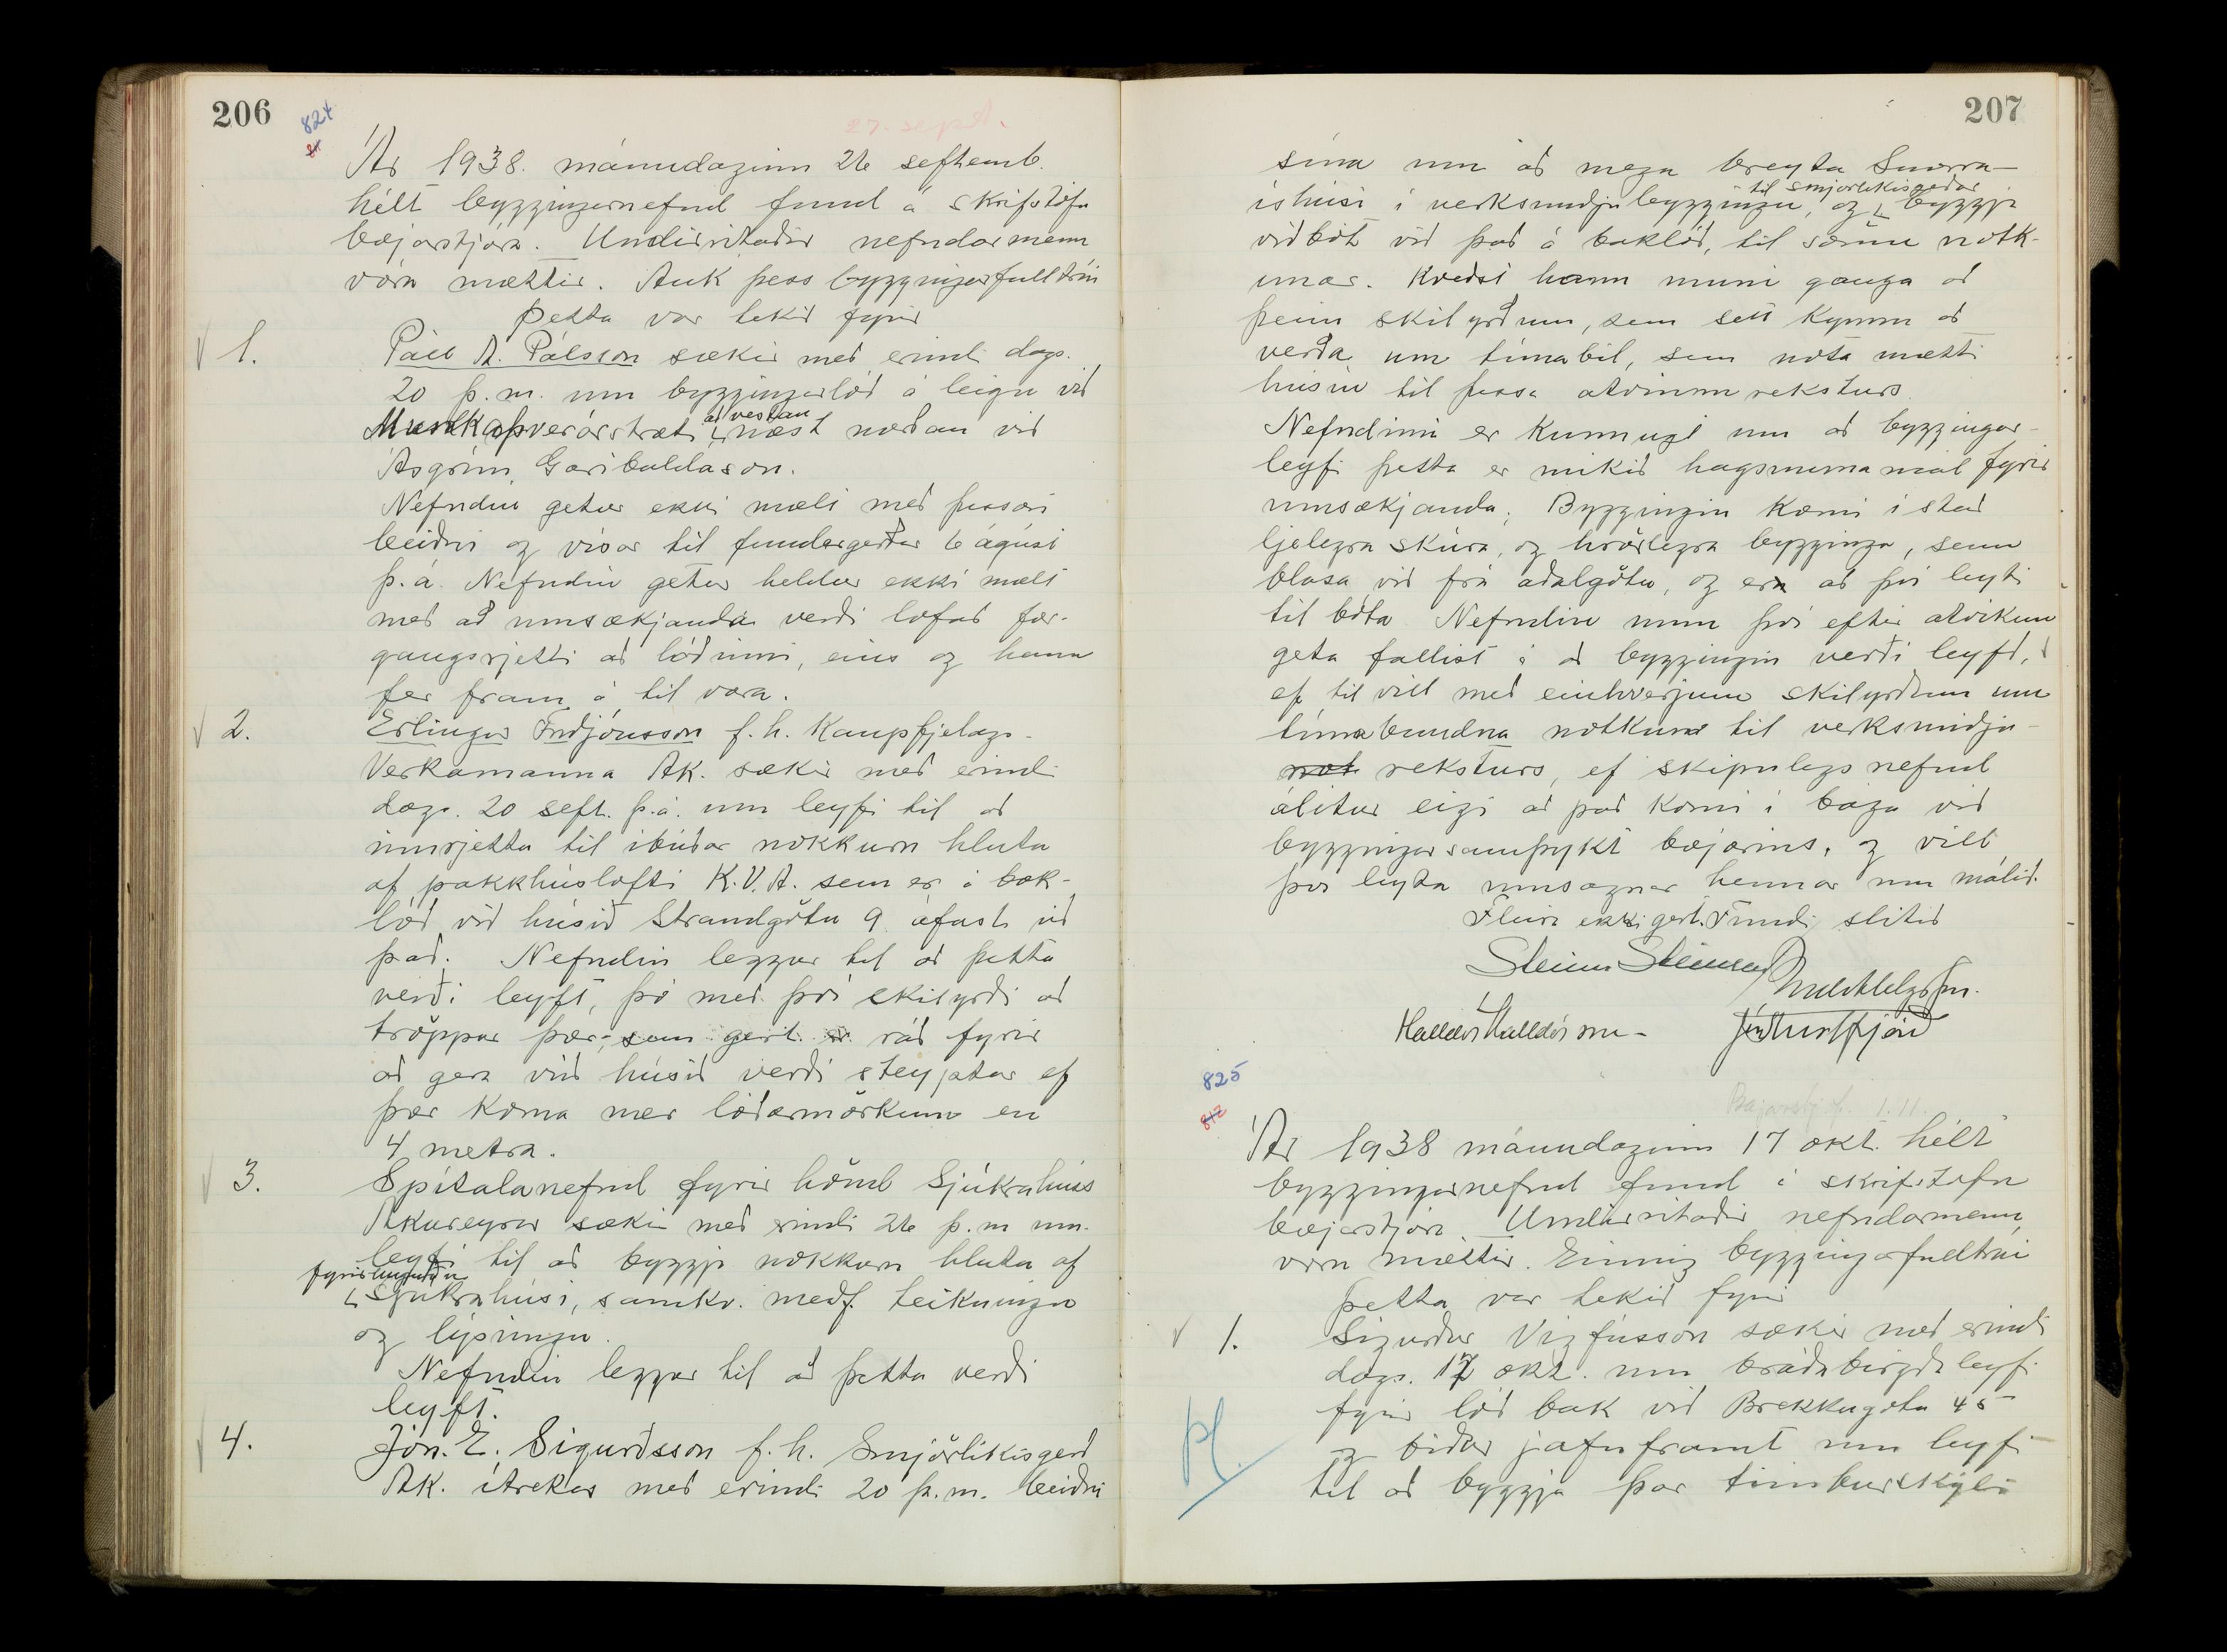 206
824
27. sept.
Ár 1938. mánudaginn 26 septemb.
hélt byggingarnefnd fund á skrifstofu
bæjarstjóra. Undirritaðir nefndarmenn
vóru mættir. Auk þess byggingarfulltrúi
Þetta var tekið fyrir
1. Páll A. Pálsson sækir með erindi dags.
20 þ.m. um byggingarlóð á leigu við
Munkaþverárstræti að vestan næst norðan við
Ásgrím Garibaldason.
Nefndin getur ekki mælt með þessari
beiðni og vísar til fundargerðar 6 ágúst
þ.á. Nefndin getur heldur ekki mælt
með að umsækjanda verði lofað for-
gangsrjetti að lóðinni, eins og hann
fer fram á til vara.
2. Erlingur Friðjónsson f.h. Kaupfjelags-
Verkamanna Ak. sækir með erindi
dags. 20 sept. þ.á. um leyfi til að
innrjetta til íbúðar nokkurn hluta
af pakkhúslofti K.V.A. sem er á bak-
lóð við húsið Strandgötu 9 áfast við
það. Nefndin leggur til að þetta
verði leyft, þó með því skilyrði að
tröppur þær, sem gert er ráð fyrir
að gera við húsið verði steyptar ef
þær koma nær lóðarmörkum en
4 metra.
3. Spítalanefnd fyrir hönd Sjúkrahúss
Akureyrar sækir með erindi 26 þ.m um
leyfi til að byggja nokkurn hluta af
fyrirhuguðu
sjúkrahúsi, samkv. meðf. teikningu
og lýsingu.
Nefndin leggur til að þetta verði
leyft.
4. Jón. E. Sigurðsson f.h. Smjörlíkisgerð
Ak. ítrekar með erindi 20 þ.m. beiðni
207
sína um að mega breyta Snorra-
íshúsi í verksmiðjubyggingu, og til smjörlíkisgerðar byggja
viðbót við það á baklóð, til sömu notk-
unar. Kveðst hann muni ganga að
þeim skilyrðum, sem sett kynnu að
verða um tímabil, sem nota mætti
húsin til þessa atvinnureksturs.
Nefndinni er kunnugt um að byggingar-
leyfi þetta er mikið hagsmunamál fyrir
umsækjanda. Byggingin komi í stað
ljelegra skúra, og hrörlegra bygginga, sem
blasa við frá aðalgötu, og er að því leyti
til bóta. Nefndin mun því eftir atvikum
geta fallist á að byggingin verði leyfð,
ef til vill með einhverjum skilyrðum um
tímabundna notkun til verksmiðju-
not reksturs, ef skipulags nefnd
álitur eigi að það komi í bága við
byggingarsamþykt bæjarins, og vill
því leyta umsagnar hennar um málið.
Fleira ekki gert. Fundi slitið
Steinn Steinsen
Halldór Halldórsson
825
Bæjarstj. 1.11.
Ár 1938 mánudaginn 17 okt. hélt
byggingarnefnd fund á skrifstofu
bæjarstjóra. Undirritaðir nefndarmenn
voru mættir. Einnig byggingafulltrúi
Þetta var tekið fyrir
1. Sigurður Vigfússon sækir með erindi
dags. 17 okt. um bráðabirgðaleyfi
fyrir lóð bak við Brekkugötu 45
og biður jafnframt um leyfi
til að byggja þar timburskýli